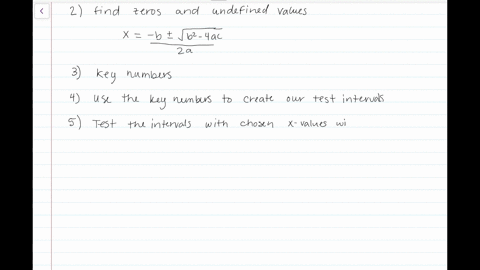 2) find zeros and undefined values
x = -b ± √b²-4ac
2a
3) key numbers
4) use the key numbers to create our test intervals
5) Test the intervals with chosen x-values wi